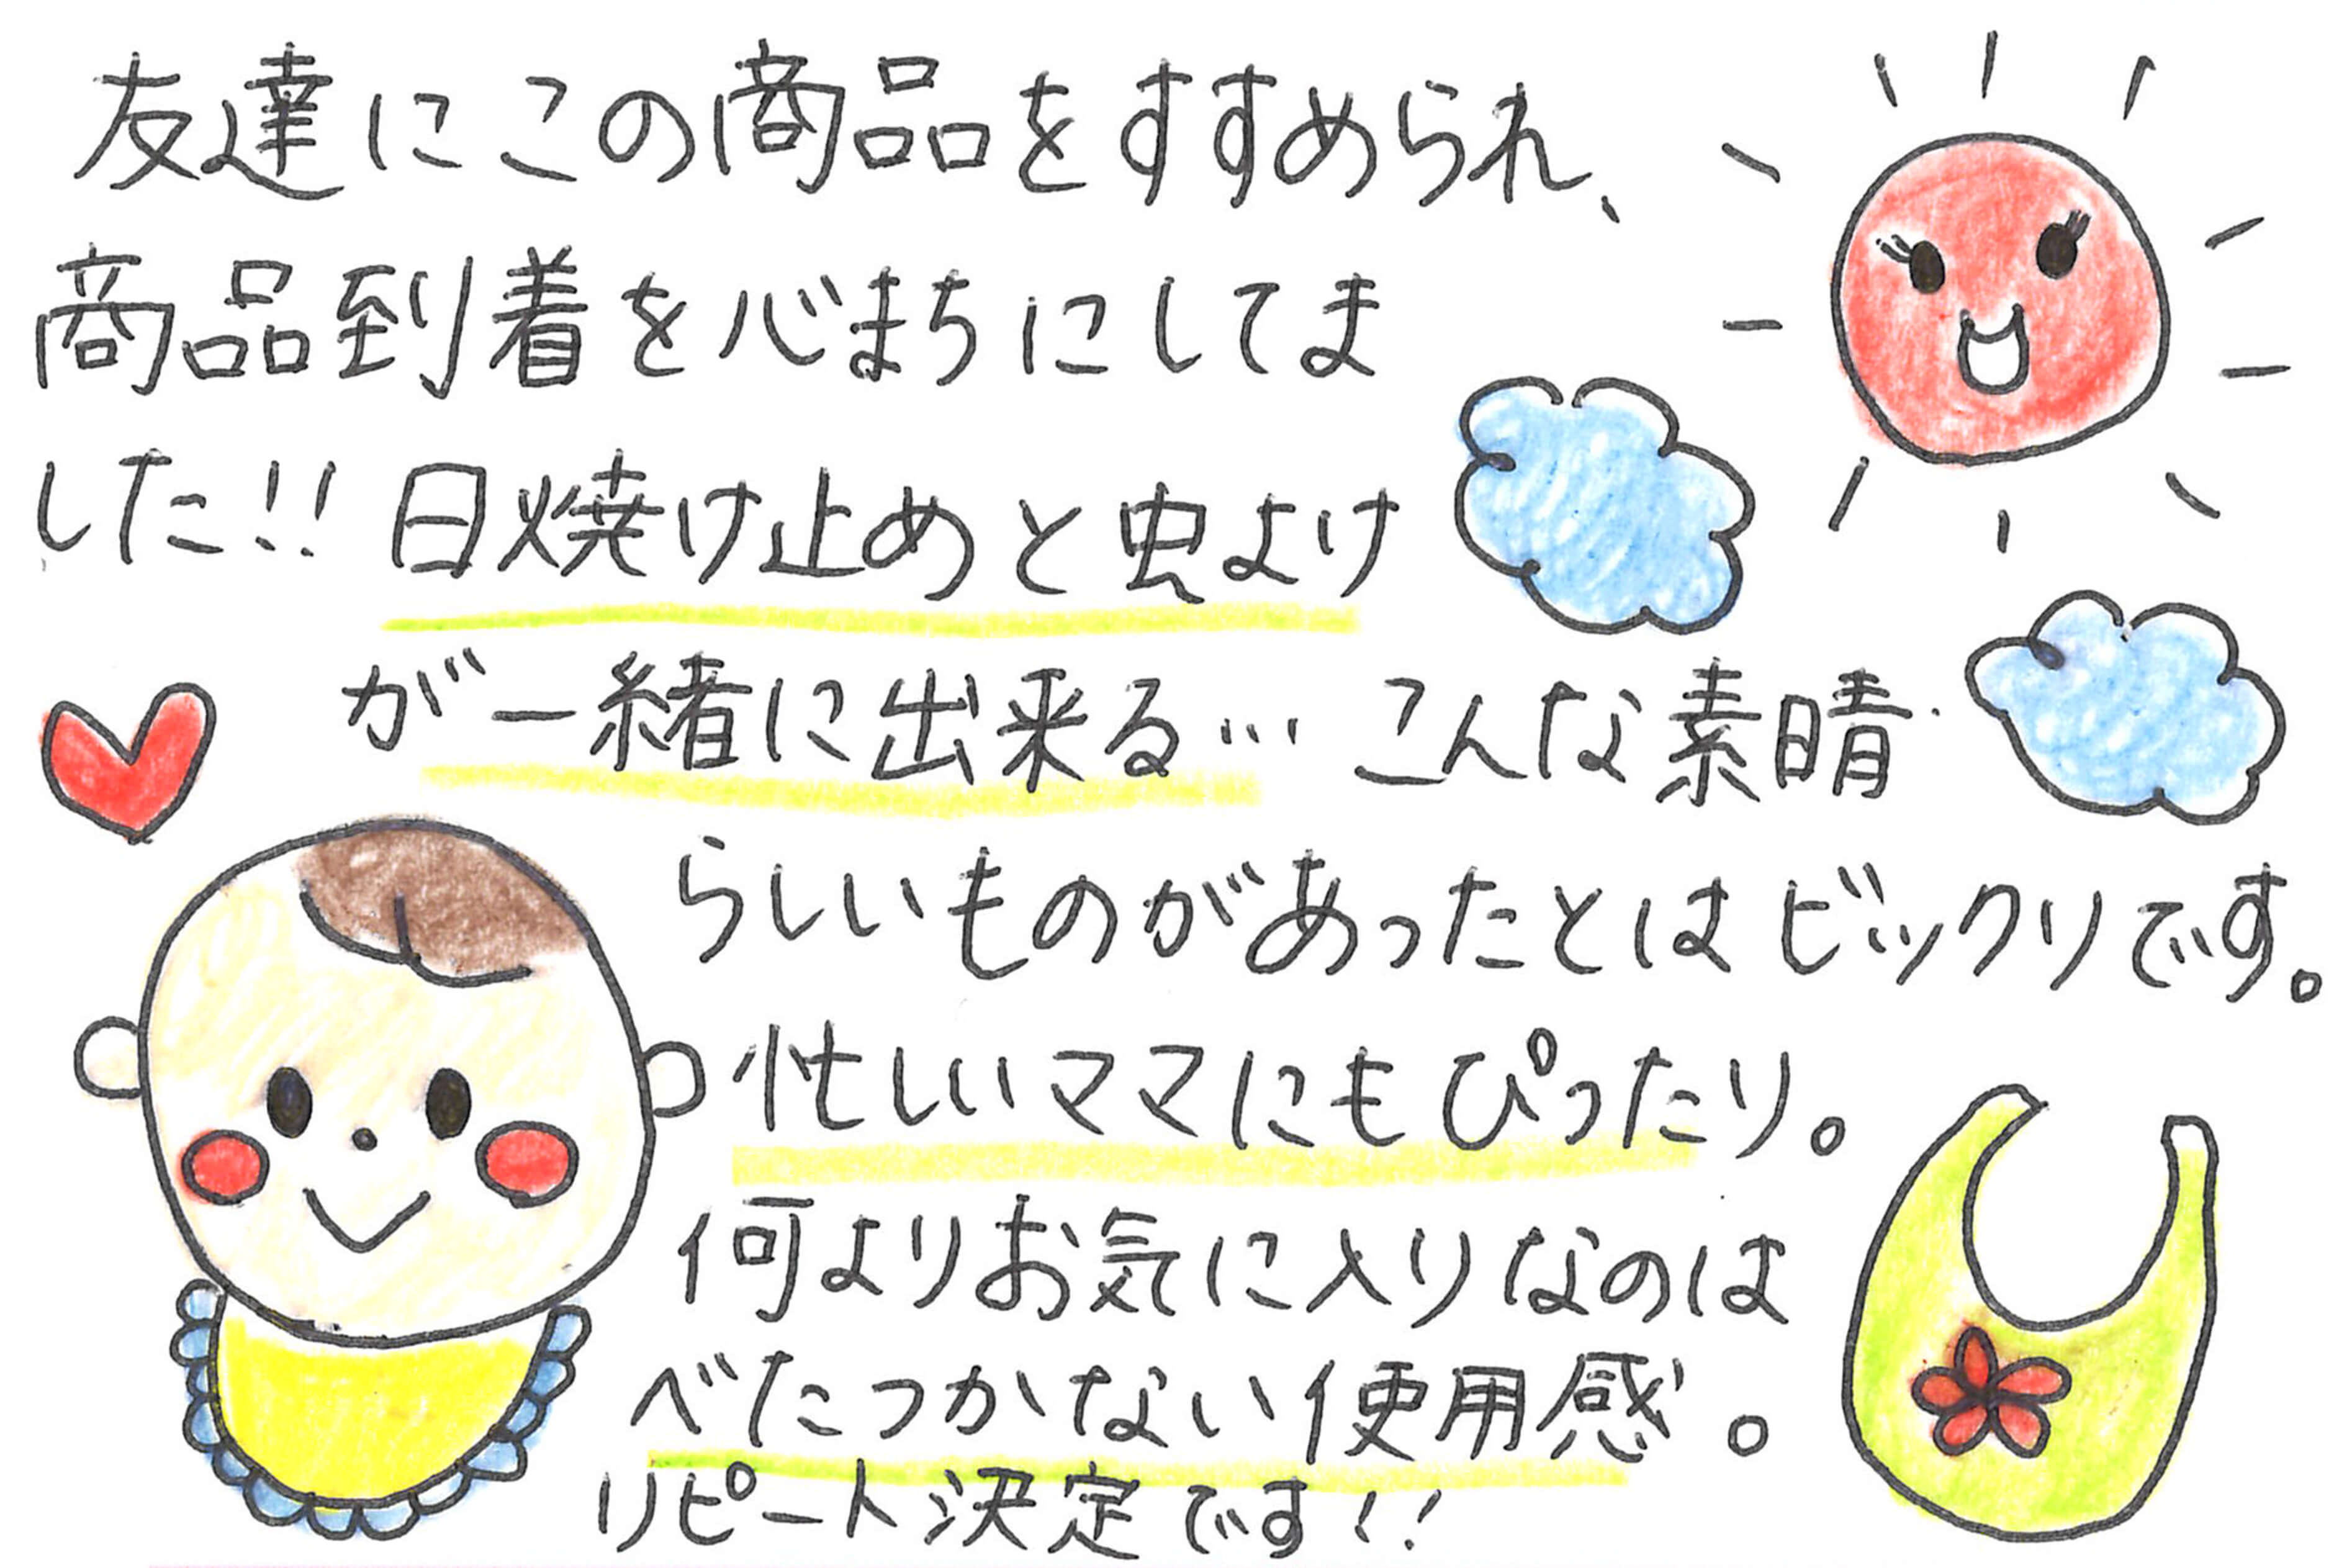 友達にこの商品をすすめられ、
商品到着を心まちにしてま
した!!日焼け止めと虫よけ
が一緒に出来る…こんな素晴
らしいものがあったとはビックリです。
忙しいママにもぴったり。
何よりお気に入りなのは
べたつかない使用感。
リピート決定です!!